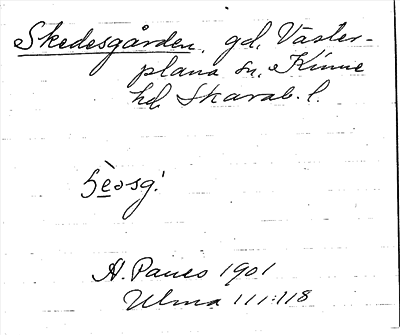 Skedesgården, gd, Väster-
plana sn, Kinne
hd Skarab. l.
A. Paues 1901
Ulma 111:118